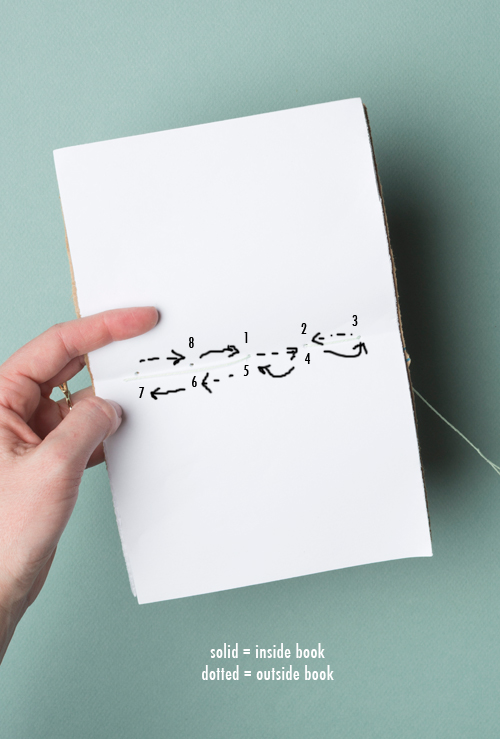 3
2
1
8
4
5
6
7
solid = inside book
dotted = outside book